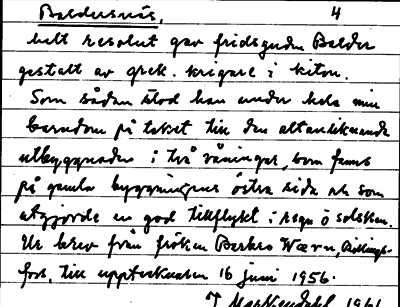 Baldersnäs. 4
helt resolut gav fridsguden Balder
gestalt av grek. krigare i kiton.
Som sådan stod han under hela min
barndom på taket till den altanliknande
utbyggnaden i två våningar, som fanns
på gamla byggningens östra sida och som
utgjorde en god tillflykt i regn o solsken.
Ur brev från fröken Barbro Wærn, Billings-
fors, till upptecknaren 16 juni 1956.
1961